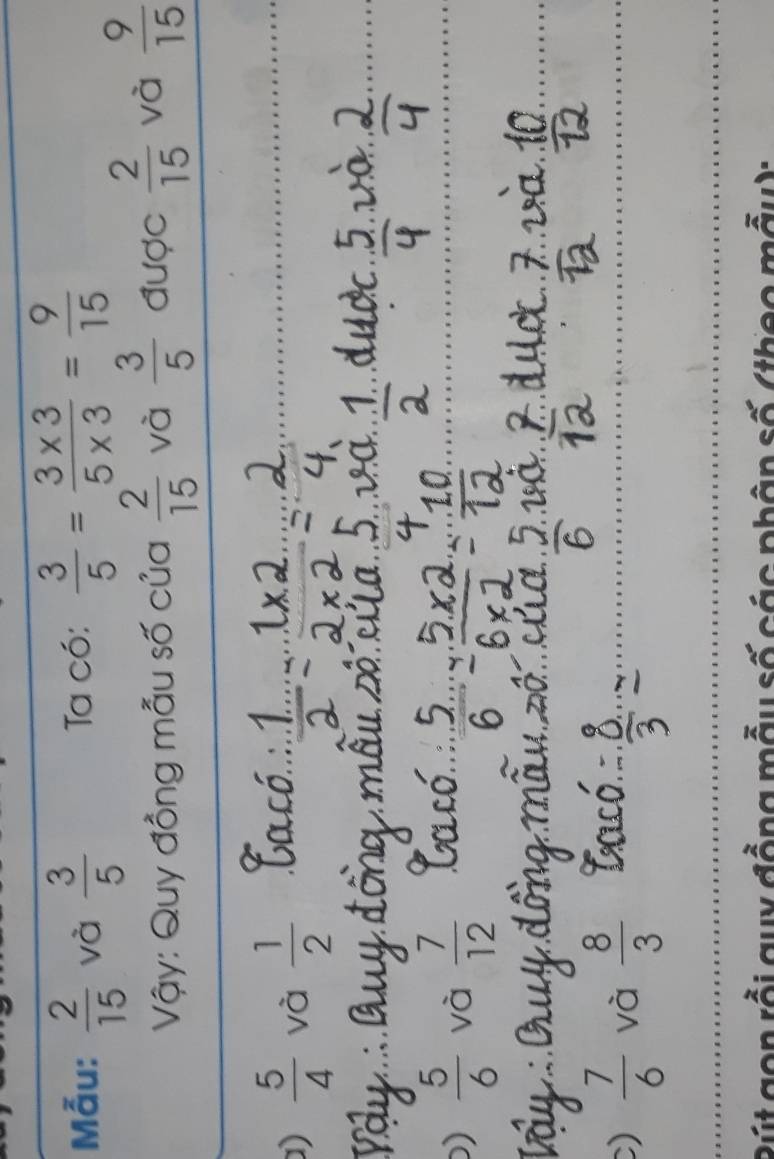 Mẫu: 2/15 và 3/5 Ta có: 3/5 = 3 x 3/5 x 3 = 9/15
Vậy: Quy đồng mẫu số của 2/15 và 3/5 được 2/15 và 9/15
a) 5/4 và 1/2 Ta có: 1/2 = 1 x 2/2 x 2 = 2/4
Vậy: Quy đồng mẫu số của 5/4 và 1/2 được 5/4 và 2/4
b) 5/6 và 7/12 Ta có: 5/6 = 5 x 2/6 x 2 = 10/12
Vậy: Quy đồng mẫu số của 5/6 và 7/12 được 7/12 và 10/12
c) 7/6 và 8/3 Ta có: 8/3 =
Rút gọn rồi quy đồng mẫu số các phân số (theo mẫu):